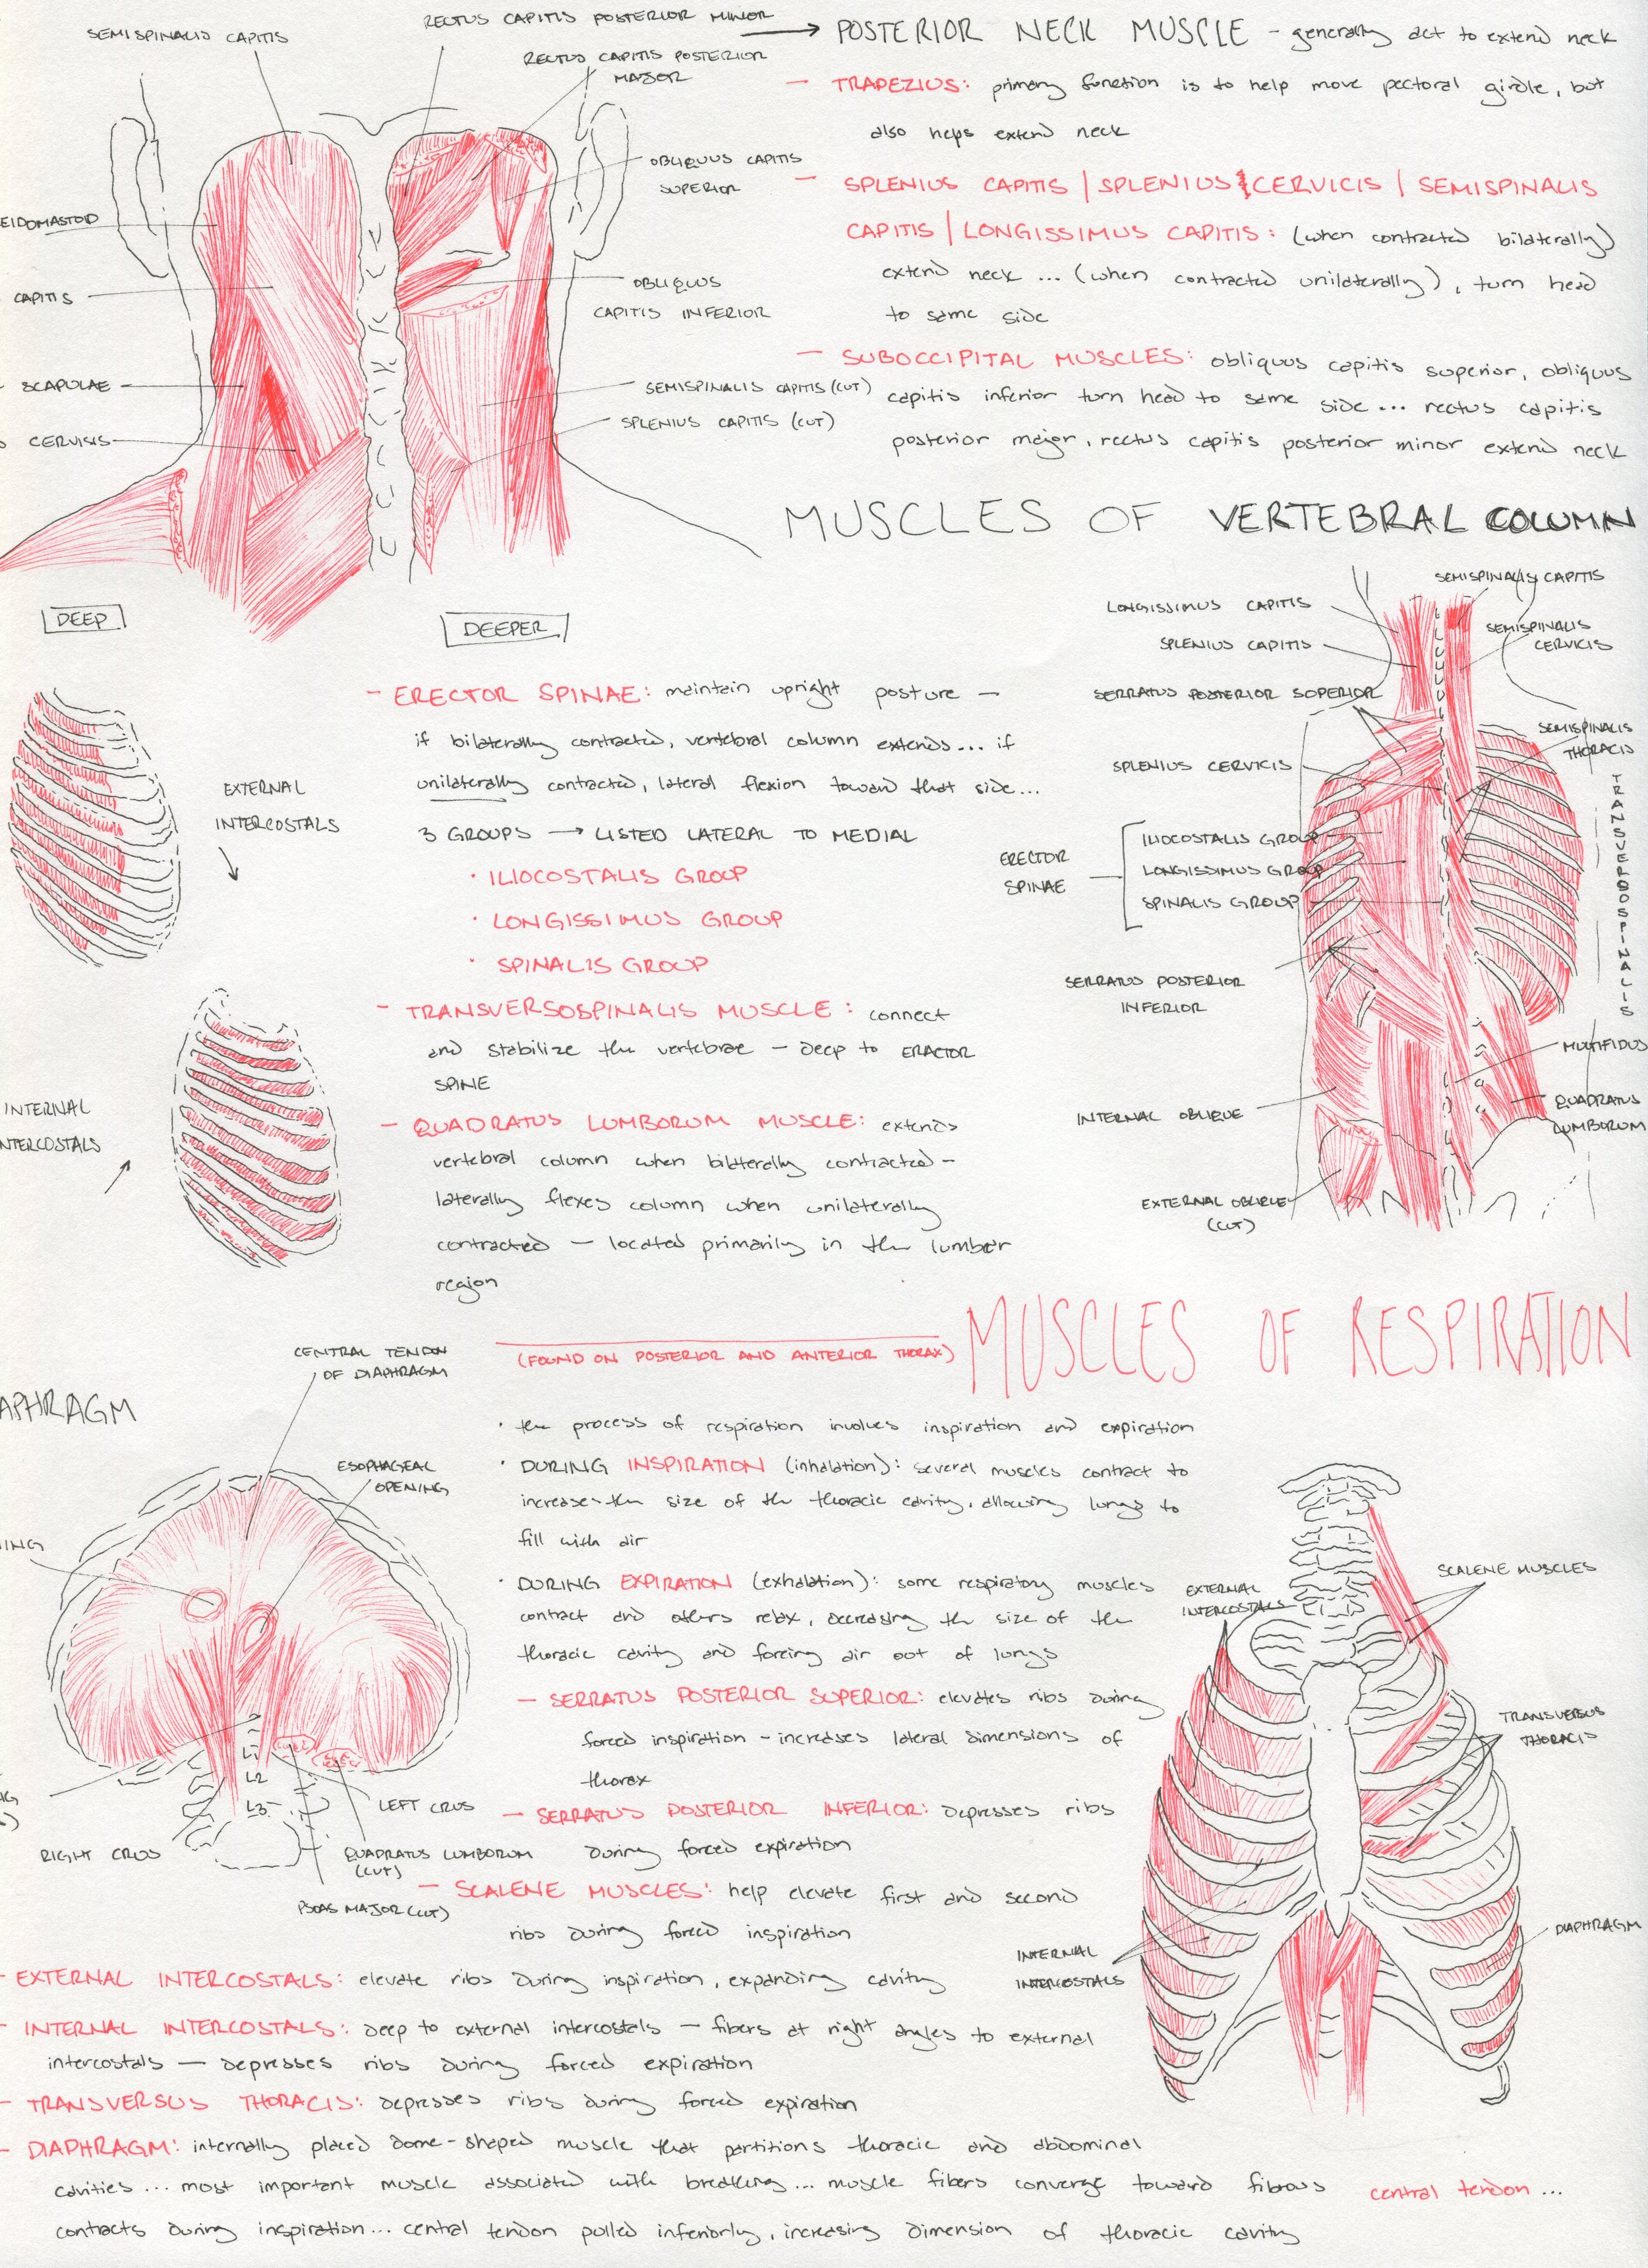 SEMISPINALIS CAPITIS
RECTUS CAPITIS POSTERIOR MINOR
RECTUS CAPITIS POSTERIOR
MAJOR
OBLIQUUS CAPITIS
SUPERIOR
EIDOMASTOID
CAPITIS
OBLIQUUS
CAPITIS INFERIOR
SCAPULAE
SEMISPINALIS CAPITIS (CUT)
CERVISIS
SPLENIUS CAPITIS (CUT)
DEEP
DEEPER
→ POSTERIOR NECK MUSCLE - generally act to extend neck
- TRAPEZIUS: primary function is to help move pectoral girdle, but
also helps extend neck
- SPLENIUS CAPITIS | SPLENIUS CERVICIS | SEMISPINALIS
CAPITIS | LONGISSIMUS CAPITIS: (when contracted bilaterally)
extend neck ... (when contracted unilaterally), turn head
to same side
- SUBOCCIPITAL MUSCLES: obliquus capitis superior, obliquus
capitis inferior turn head to same side ... rectus capitis
posterior major, rectus capitis posterior minor extend neck
MUSCLES OF VERTEBRAL COLUMN
EXTERNAL
INTERCOSTALS
INTERNAL
NTERCOSTALS
- ERECTOR SPINAE: maintain upright posture -
if bilaterally contracted, vertebral column extends... if
unilaterally contracted, lateral flexion toward that side...
3 GROUPS → LISTED LATERAL TO MEDIAL
• ILIOCOSTALIS GROUP
• LONGISSIMUS GROUP
• SPINALIS GROUP
- TRANSVERSOSPINALIS MUSCLE: connect
and stabilize the vertebrae - deep to ERACTOR
SPINE
- QUADRATUS LUMBORUM MUSCLE: extends
vertebral column when bilaterally contracted -
laterally flexes column when unilaterally
contracted - located primarily in the lumbar
region
SEMISPINALIS CAPITIS
LONGISSIMUS CAPITIS
SEMISPINALIS
CERVICIS
SPLENIUS CAPITIS
SERRATUS POSTERIOR SUPERIOR
SEMISPINALIS
THORACIS
SPLENIUS CERVICIS
TRANSVERSOSPINALIS
ERECTOR
SPINAE
ILIOCOSTALIS GROUP
LONGISSIMUS GROUP
SPINALIS GROUP
SERRATUS POSTERIOR
INFERIOR
MULTIFIDUS
INTERNAL OBLIQUE
QUADRATUS
LUMBORUM
EXTERNAL OBLIQUE
(CUT)
MUSCLES OF RESPIRATION
(FOUND ON POSTERIOR AND ANTERIOR THORAX)
APHRAGM
CENTRAL TENDON
OF DIAPHRAGM
ESOPHAGEAL
OPENING
NING
L1
L2
L3
LEFT CRUS
RIGHT CRUS
QUADRATUS LUMBORUM
(CUT)
PSOAS MAJOR (CUT)
• the process of respiration involves inspiration and expiration
• DURING INSPIRATION (inhalation): several muscles contract to
increase the size of the thoracic cavity, allowing lungs to
fill with air
• DURING EXPIRATION (exhalation): some respiratory muscles
contract and others relax, decreasing the size of the
thoracic cavity and forcing air out of lungs
- SERRATUS POSTERIOR SUPERIOR: elevates ribs during
forced inspiration - increases lateral dimensions of
thorax
- SERRATUS POSTERIOR INFERIOR: depresses ribs
during forced expiration
- SCALENE MUSCLES: help elevate first and second
ribs during forced inspiration
- EXTERNAL INTERCOSTALS: elevate ribs during inspiration, expanding cavity
- INTERNAL INTERCOSTALS: deep to external intercostals - fibers at right angles to external
intercostals - depresses ribs during forced expiration
- TRANSVERSUS THORACIS: depresses ribs during forced expiration
- DIAPHRAGM: internally placed dome-shaped muscle that partitions thoracic and abdominal
cavities ... most important muscle associated with breathing ... muscle fibers converge toward fibrous central tendon ...
contracts during inspiration ... central tendon pulled inferiorly, increasing dimension of thoracic cavity
EXTERNAL
INTERCOSTALS
SCALENE MUSCLES
TRANSVERSUS
THORACIS
INTERNAL
INTERCOSTALS
DIAPHRAGM